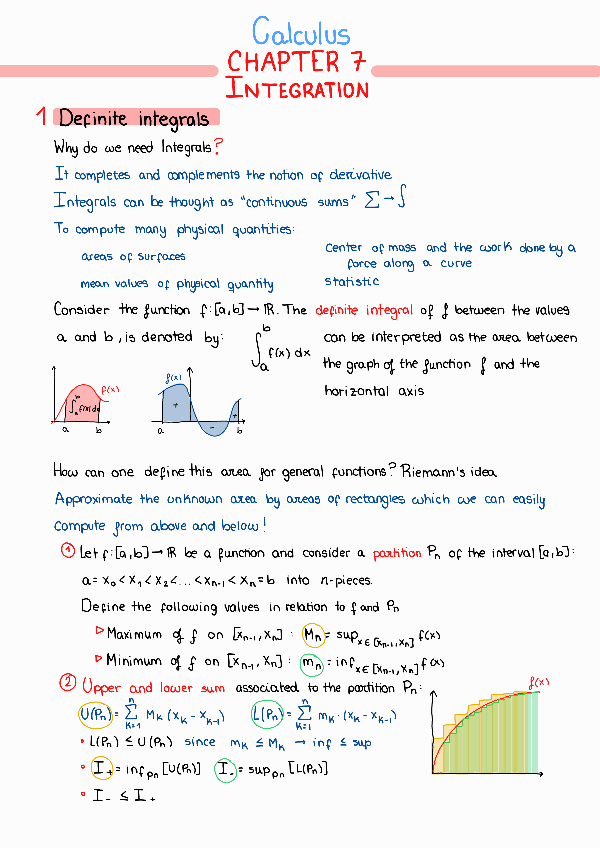 Calculus
CHAPTER 7
INTEGRATION
1 Definite integrals
Why do we need Integrals?
It completes and complements the notion of derivative
Integrals can be thought as "continuous sums" ∑→∫
To compute many physical quantities:
areas of surfaces
mean values of physical quantity
center of mass and the work done by a
force along a curve
statistic
Consider the function f:[a,b]→ℝ. The definite integral of f between the values
a and b, is denoted by: ∫_a^b f(x) dx can be interpreted as the area between
the graph of the function f and the
horizontal axis
f(x)
∫_a^b f(x)dx
a b
f(x)
+ - +
a b
How can one define this area for general functions? Riemann's idea
Approximate the unknown area by areas of rectangles which we can easily
compute from above and below!
① Let f:[a,b]→ℝ be a function and consider a partition Pn of the interval [a,b]:
a = x₀ < x₁ < x₂ < ... < xn-1 < xn = b into n-pieces.
Define the following values in relation to f and Pn
▷ Maximum of f on [xn-1, xn] : Mn = sup x∈[xn-1, xn] f(x)
▷ Minimum of f on [xn-1, xn] : mn = inf x∈[xn-1, xn] f(x)
② Upper and lower sum associated to the partition Pn:
U(Pn) = ∑_{k=1}^n Mk (xk - xk-1) L(Pn) = ∑_{k=1}^n mk · (xk - xk-1)
• L(Pn) ≤ U(Pn) since mk ≤ Mk → inf ≤ sup
• I+ = inf Pn [U(Pn)] I- = sup Pn [L(Pn)]
• I- ≤ I+
f(x)